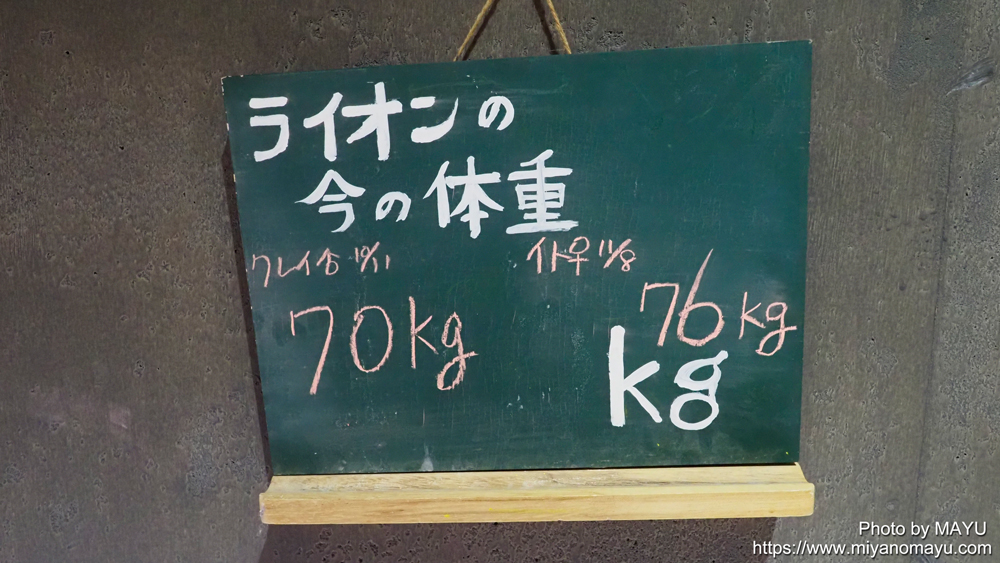 ライオンの
今の体重
クレイ♂ 10/11
イト♀ 11/8
70kg
76kg
kg
Photo by MAYU
https://www.miyanomayu.com